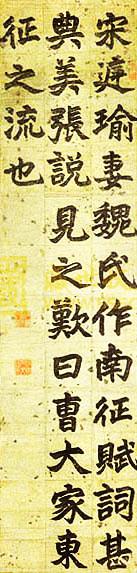 宋遊瑜妻魏氏作南征賦詞甚
典美張說見之歎曰曹大家東
征之流也